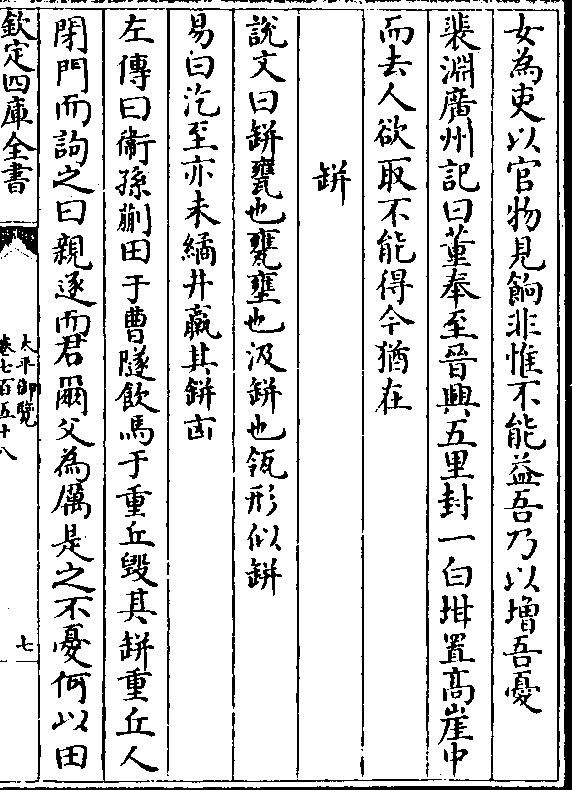 女為吏以官物見餉非惟不能益吾乃以増吾憂
裴淵廣州記曰董奉至晉興五里封一白坩置髙崖中
而去人欲取不能得今猶在
缾
說文曰缾甕也甕罋也汲缾也瓴形似缾
易曰汔至亦未繘井羸其缾凶
左傳曰衞孫蒯田于曹隧飲馬于重丘毀其缾重丘人
閉門而訽之曰親逐而君爾父為厲是之不憂何以田
欽定四庫全書
太平御覽
卷七百五十八
七